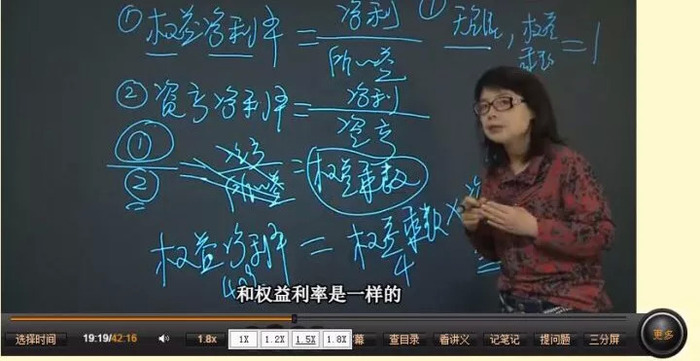 ① 权益净利率 = 净利 / 所·益
① 无负债, 权益乘数 = 1
② 资产净利率 = 净利 / 资产
① / ② = 资产 / 所·益 = 权益乘数
权益净利率 = 权益乘数 ×
4
和权益利率是一样的
选择时间 19:19/42:16 1.8x 1X 1.2X 1.5X 1.8X 幕 查目录 看讲义 记笔记 提问题 三分屏 更多